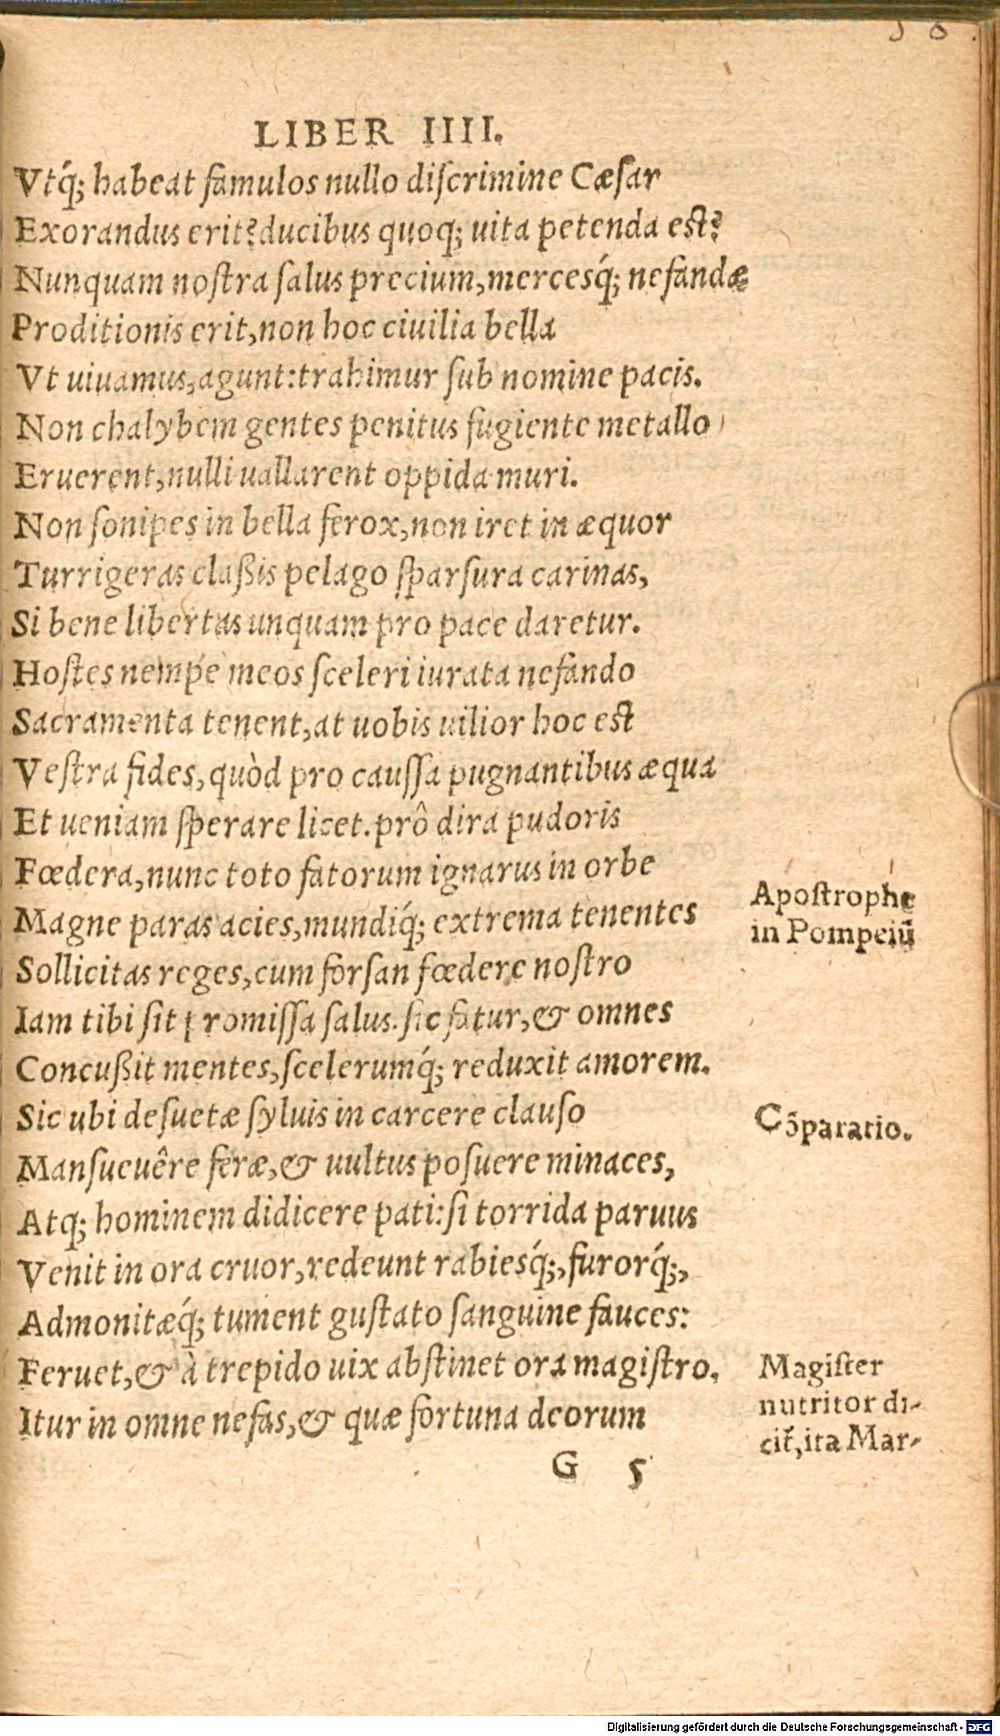 LIBER IIII.
Vtq́; habeat famulos nullo discrimine Cæsar
Exorandus erit? ducibus quoq; uita petenda est?
Nunquam nostra salus precium, mercesq́; nefandæ
Proditionis erit, non hoc ciuilia bella
Vt uiuamus, agunt: trahimur sub nomine pacis.
Non chalybem gentes penitus fugiente metallo
Eruerent, nulli uallarent oppida muri.
Non sonipes in bella ferox, non iret in æquor
Turrigeras claßis pelago sparsura carinas,
Si bene libertas unquam pro pace daretur.
Hostes nempe meos sceleri iurata nefando
Sacramenta tenent, at uobis uilior hoc est
Vestra fides, quòd pro caussa pugnantibus æqua
Et ueniam sperare licet. prô dira pudoris
Fœdera, nunc toto fatorum ignarus in orbe
Magne paras acies, mundiq́; extrema tenentes
Apostrophe
in Pompeiũ
Sollicitas reges, cum forsan fœdere nostro
Iam tibi sit promissa salus. sic fatur, & omnes
Concußit mentes, scelerumq́; reduxit amorem.
Sic ubi desuetæ syluis in carcere clauso
Cõparatio.
Mansueuêre feræ, & uultus posuere minaces,
Atq; hominem didicere pati: si torrida paruus
Venit in ora cruor, redeunt rabiesq́;, furorq́;,
Admonitæq́; tument gustato sanguine fauces:
Feruet, & à trepido uix abstinet ora magistro.
Magister
nutritor di-
cit̃, ita Mar-
Itur in omne nefas, & quæ fortuna deorum
G 5
Digitalisierung gefördert durch die Deutsche Forschungsgemeinschaft - DFG